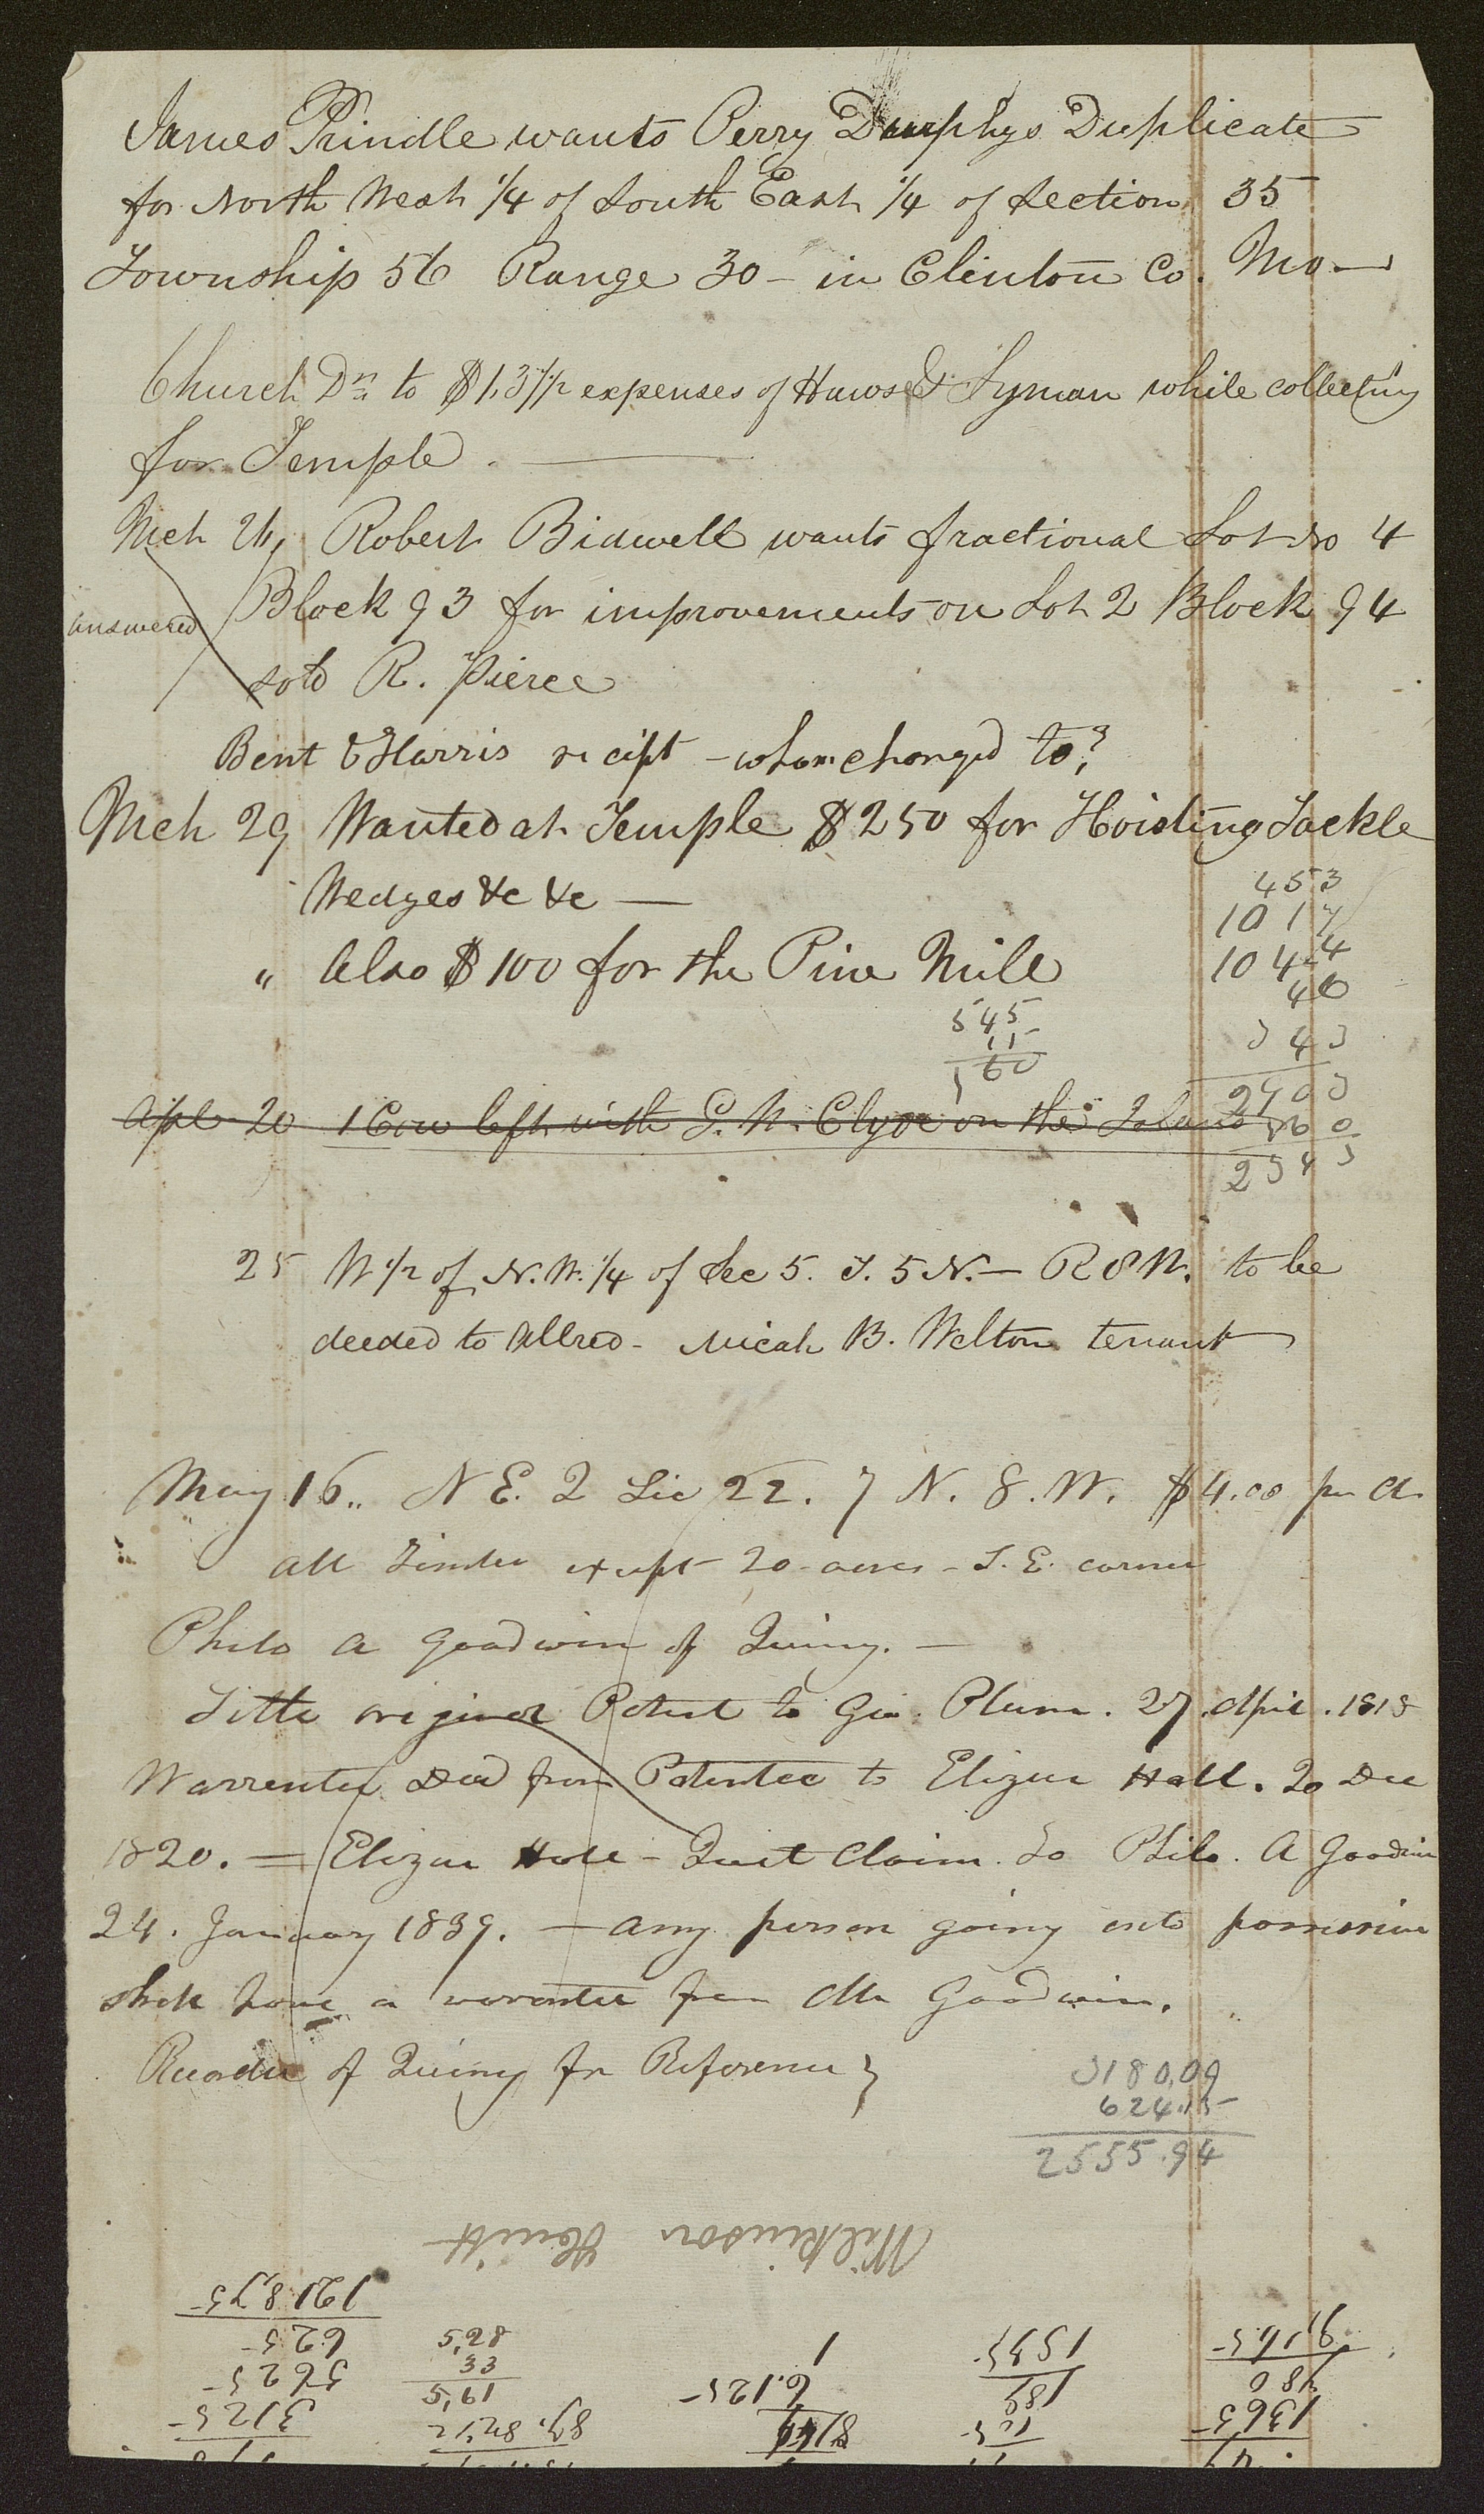 James Prindle wants Perry Durphys Duplicate
for North West 1/4 of South East 1/4 of Section 35
Township 56 Range 30 - in Clinton Co. Mo —
Church Dr. to $1,31 1/2 expenses of Haws & Lyman while collecting
for Temple. —
Mch 26, Robert Bidwell wants fractional Lot No 4
Block 93 for improvements on Lot 2 Block 94
answered
sold R. Pierce
Bent & Harris recipt - whom charged to?
Mch 29 Wanted at Temple $250 for Hoisting Tackle
Wedges &c &c —
453
1017
" Also $100 for the Pine Mill
1044
46
545
15
560
Apl 20 1 Cow left with G. W. Clyde on the Island
25 W 1/2 of N.W. 1/4 of Sec 5. T. 5 N. — R 8 W. to be
deeded to Allred - Micah B. Welton tenant
May 16.. N E. 2 Sec 22. 7 N. 8. W. $4.00 per A.
all Timber except 20 acres - S. E. corner
Philo A Goodwin of Quincy. —
Title original Patent to Geo. Plum. 27. April. 1818
Warrentee Deed from Patentee to Elizur Hall. 20 Dec
1820. = Elizur Hall - Quit Claim. To Philo. A Goodwin
24. January 1839. — any person going onto possession
shall have a warrantee from Mr Goodwin.
Recorder of Quincy for Reference }
3180,09
624.15
2555.94
Wilkinson Hewitt
1218,75
625
5625
3125
5,28
33
5,61
87,82 1/2
1
6.125
1535
180
9,165
480
1365